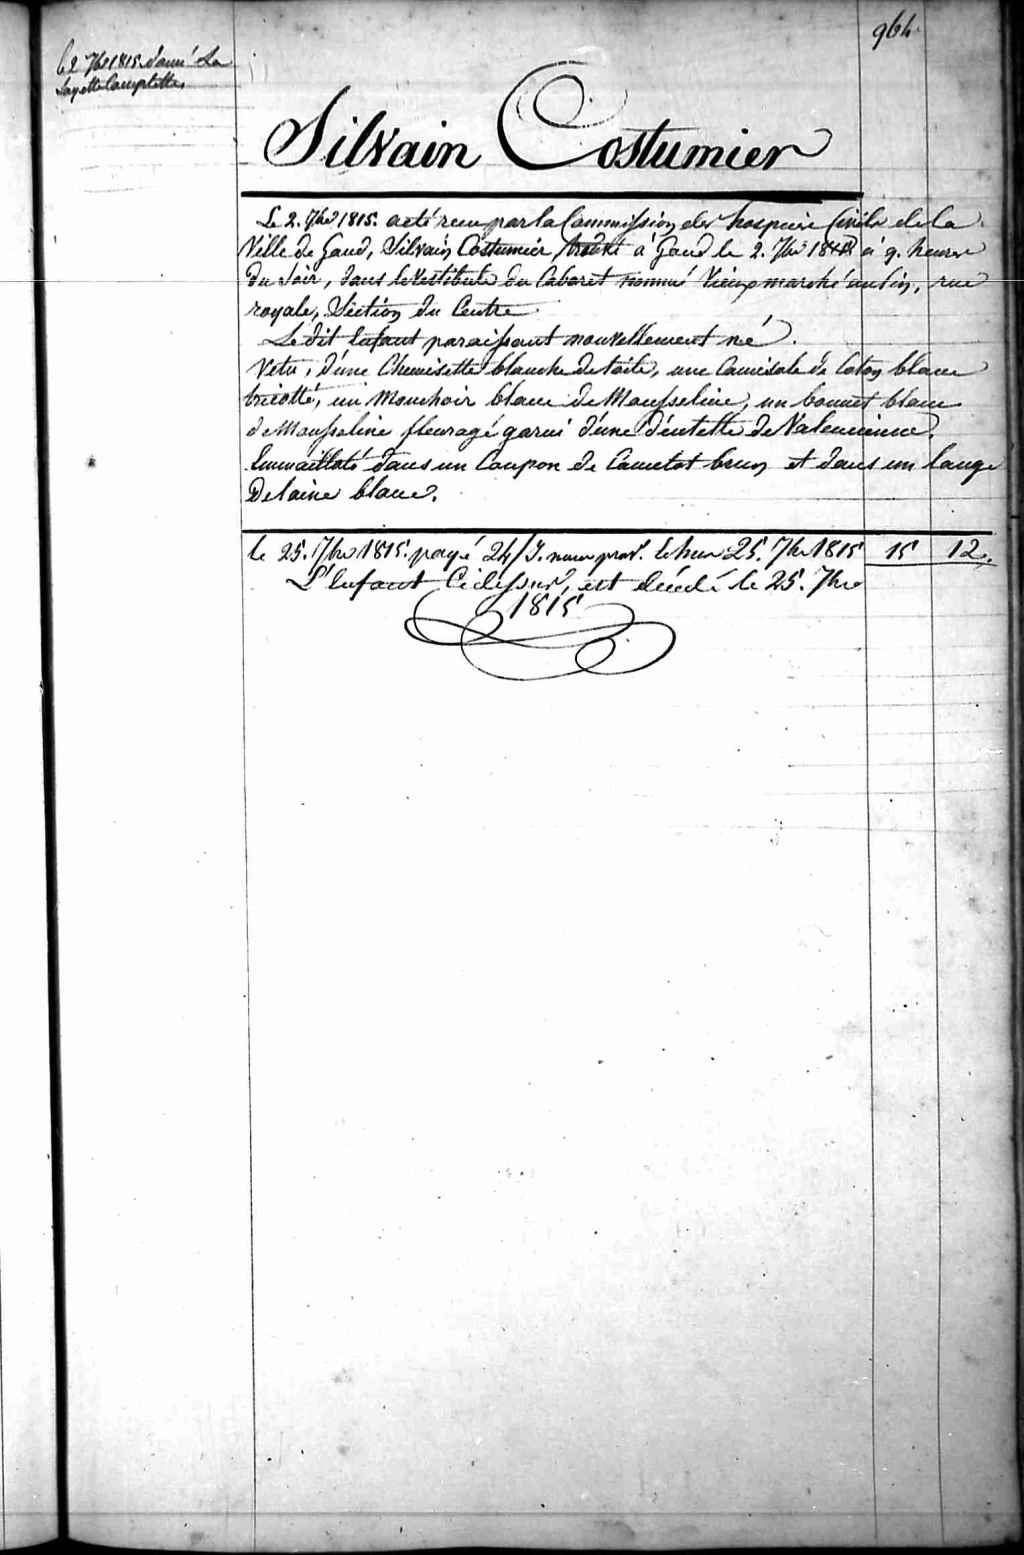 964.
Le 2 7bre 1815 donné La
Layette Complette,
Silvain Costumier
Le 2. 7bre 1815. a eté recu par la Commission des hospices Civils de la
Ville de Gand, Silvain Costumier, trouvé à Gand le 2. 7bre à 9. heures
du soir, dans le vestibule du Cabaret nommé Vieux marché au lin, rue
royale, Section du Centre
Le dit Enfant paraissant nouvellement né.
Vetu, d'une Chemisette blanche de toile, une Camisole de Coton blanc
tricotté, un Mouchoir blanc de Mousseline, un bonnet blanc
de Mousseline fleuragé garni d'une dentelle de Valencienne,
Emmailloté dans un Coupon de Camelot brun et dans un lange
De laine blanc.
le 25. 7bre 1815. payé 24/J. nourr prov. Echus 25. 7bre 1815 15 12.
L'Enfant Cidessus, est décédé le 25. 7bre
1815